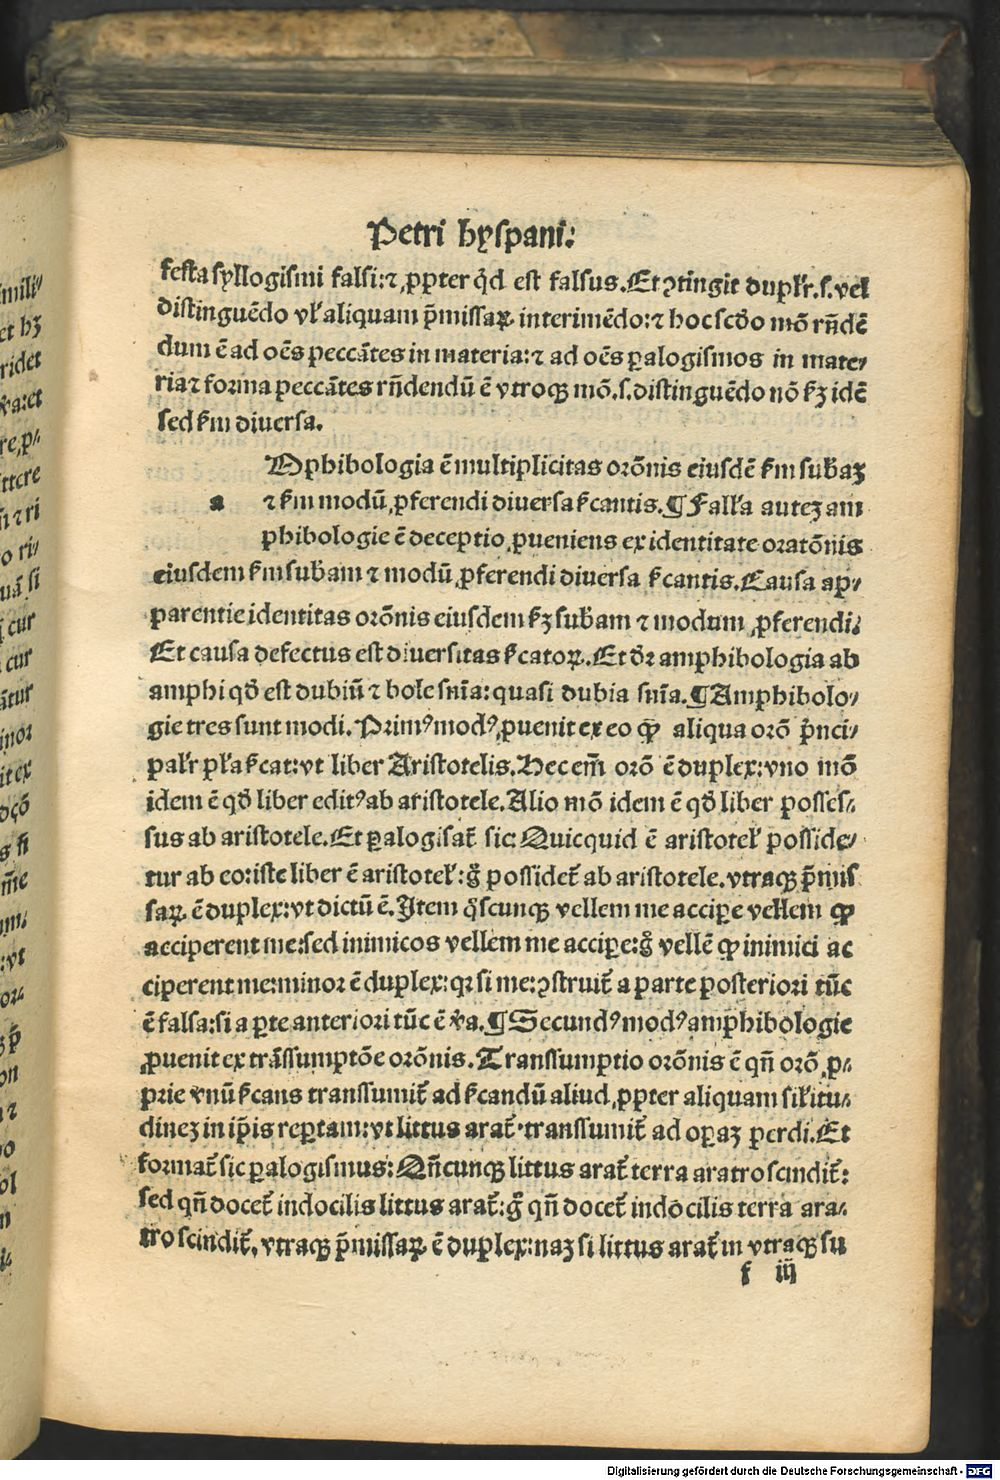 Petri hyspani:
festa syllogismi falsi:⁊ ꝓpter qd̓ est falsus.Et ꝯtingit duplr̓.s.vel
distinguēdo vl̓ aliquam p̄missaꝝ interimēdo:⁊ hoc scd̓o mō rn̄dē
dum ē ad oēs peccātes in materia:⁊ ad oēs ꝑalogismos in mate⸗
ria ⁊ forma peccātes rn̄dendū ē vtroqꝫ mō.s.distinguēdo nō ẜꝫ idē
sed ẜm diuersa.
Mphibologia ē multiplicitas orōnis eiusdē ẜm subaꝫ
a ⁊ ẜm modū ꝓferendi diuersa ẜcantis.¶ Falla̓ auteꝫ am
phibologie ē deceptio ꝓueniens ex identitate oratōnis
eiusdem ẜm subam ⁊ modū ꝓferendi diuersa ẜcantis.Causa ap⸗
parentie identitas orōnis eiusdem ẜꝫ subam ⁊ modum ꝓferendi.
Et causa defectus est diuersitas ẜcatoꝝ.Et dr̓ amphibologia ab
amphi qd̓ est dubiū ⁊ bole sn̄ia:quasi dubia sn̄ia.¶ Amphibolo⸗
gie tres sunt modi.Primꝰ modꝰ ꝓuenit ex eo ꝙ aliqua orō p̄nci⸗
palr̓ pla̓ ẜcat:vt liber Aristotelis.Hec em̄ orō ē duplex:vno mō
idem ē qd̓ liber editꝰ ab aristotele.Alio mō idem ē qd̓ liber posses⸗
sus ab aristotele.Et ꝑalogisat̓ sic:Quicquid ē aristotel̓ posside⸗
tur ab eo:iste liber ē aristotel̓:g̊ possidet̓ ab aristotele.vtraqꝫ p̄mis
saꝝ ē duplex:vt dictū ē.Item qͦscunqꝫ vellem me acciꝑe vellem ꝙ
acciperent me:sed inimicos vellem me acciꝑe:g̊ vellē ꝙ inimici ac
ciperent me:minor ē duplex:qꝛ si me:ꝯstruit̓ a parte posteriori tūc
ē falsa:si a ꝑte anteriori tūc ē v̓a.¶ Secundꝰ modꝰ amphibologie
ꝓuenit ex trāssumptōe orōnis.Transsumptio orōnis ē qn̄ orō ꝓ⸗
prie vnū ẜcans transsumit̓ ad ẜcandū aliud ꝓpter aliquam sil̓itu⸗
dineꝫ in ip̄is reꝑtam:vt littus arat̓ transsumit̓ ad oꝑaꝫ perdi.Et
format̓ sic ꝑalogismus:Qn̄cunqꝫ littus arat̓ terra aratro scindit̓:
sed qn̄ docet̓ indocilis littus arat̓:g̊ qn̄ docet̓ indocilis terra ara⸗
tro scindit̓. vtraqꝫ p̄missaꝝ ē duplex:naꝫ si littus arat̓ in vtraqꝫ su
f iij
Digitalisierung gefördert durch die Deutsche Forschungsgemeinschaft - DFG